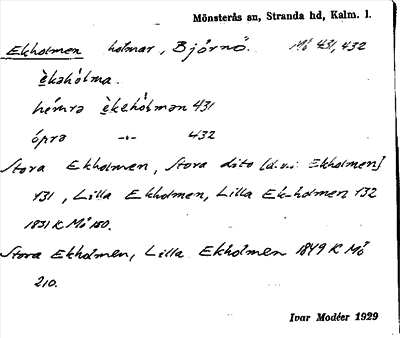 Mönsterås sn, Stranda hd, Kalm. l.
Ekholmen holmar, Björnö. Mö 431, 432
èkahòlma.
hémra èkahòlmən 431
ópra -"- 432
Stora Ekholmen, Stora dito [d.v.s. Ekholmen]
431, Lilla Ekholmen, Lilla Ek-holmen 432
1831 K Mö 180.
Stora Ekholmen, Lilla Ekholmen 1849 K Mö
210.
Ivar Modéer 1929